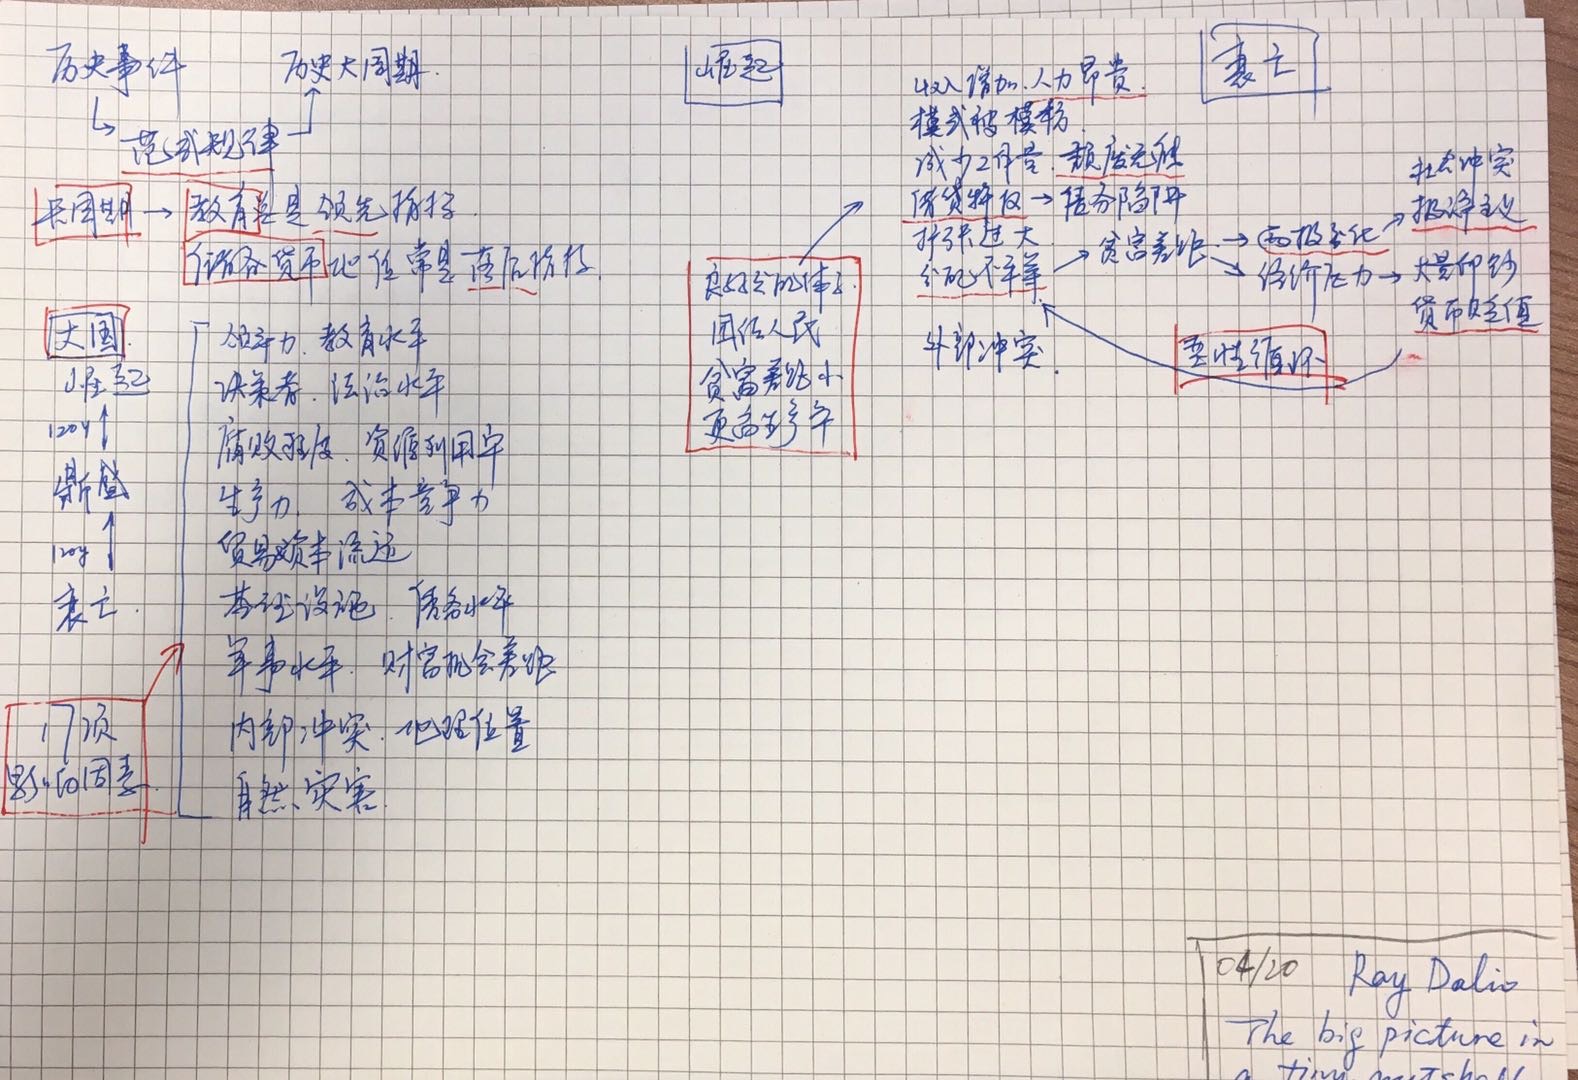 历史事件 历史大周期.
范式规律
长周期 → 教育总是领先指标.
储备货币地位常是落后指标.
大国
崛起
120y
鼎盛
120y
衰亡.
17项
影响因素
领导力、教育水平
决策者、法治水平
腐败程度、资源利用率
生产力、成本竞争力
贸易资本流适
基础设施、债务水平
军事水平、财富机会差距
内部冲突、地理位置
自然灾害
崛起
良好分配体系
团结人民
贫富差距小
更高生产率
衰亡
收入增加.人力昂贵.
模式被模仿.
减少工作量.颓废无能
借贷特权 → 债务陷阱
扩张过大
分配不平等 → 贫富差距 → 两极分化 → 社会冲突
极端主义
→ 经济压力 → 大量印钞
货币贬值
外部冲突.
恶性循环
04/20 Ray Dalio
The big picture in
a tiny nutshell